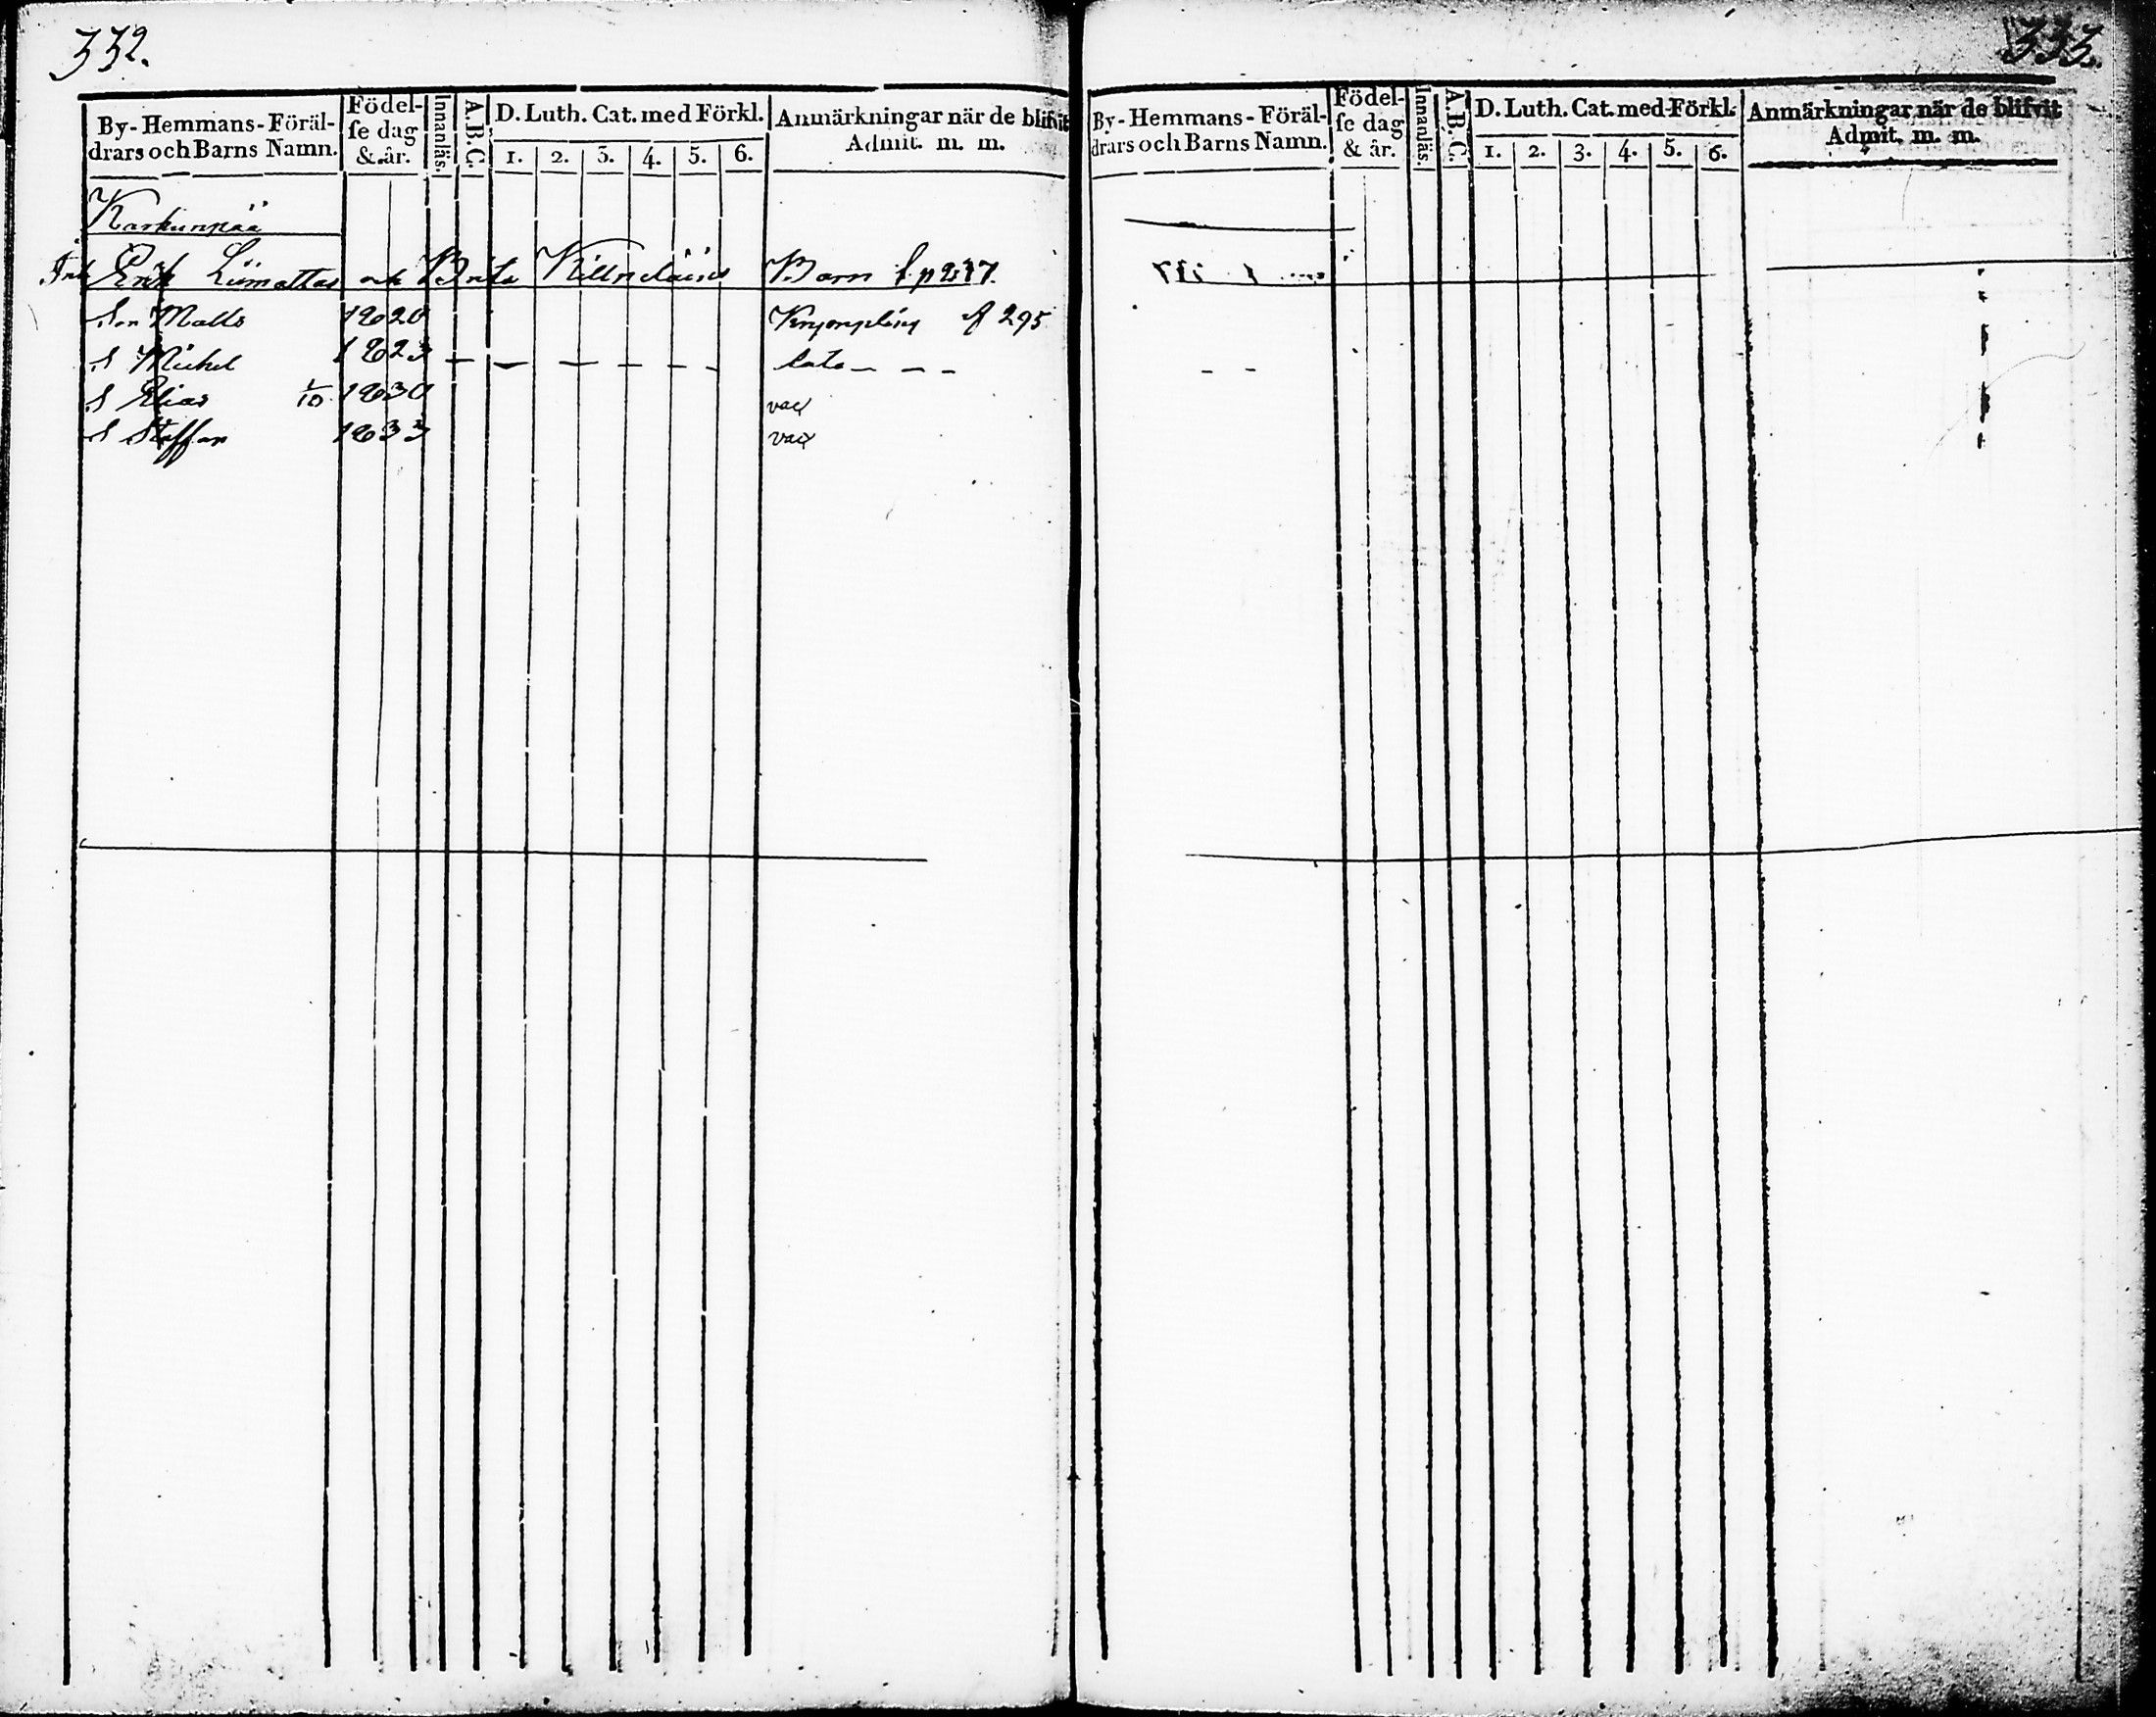 332.
By- Hemmans- Föräl-
drars och Barns Namn.
Födel-
se dag
& år.
Innanläs.
A.B.C.
D. Luth. Cat. med Förkl.
1. 2. 3. 4. 5. 6.
Anmärkningar när de blifvit
Admit. m. m.
Karkunpää
Inh Erik Liimattas och Brita Barn f. p 217.
Son Matts 1820 f 295
S Michel 1823
S Elias 1/10 1830 vac
S Staffan 1833 vac
333.
By- Hemmans- Föräl-
drars och Barns Namn.
Födel-
se dag
& år.
Innanläs.
A.B.C.
D. Luth. Cat. med Förkl.
1. 2. 3. 4. 5. 6.
Anmärkningar när de blifvit
Admit. m. m.